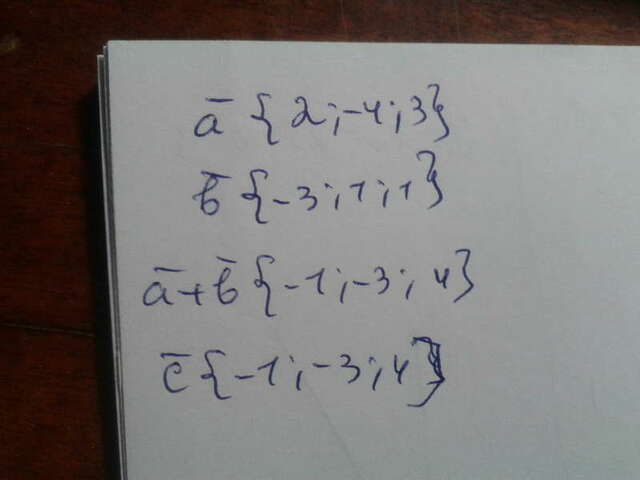 a̅ {2;-4;3}
b̅ {-3;1;1}
a̅+b̅ {-1;-3;4}
c̅ {-1;-3;4}